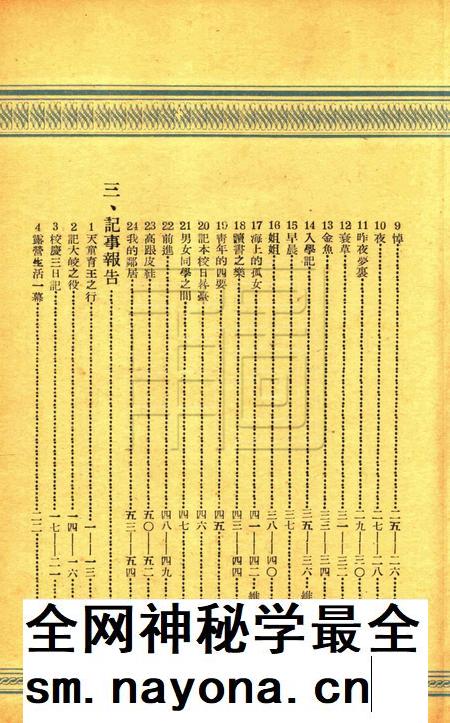 9 悼……二五——二六
10 夜……二七——二八
11 昨夜夢裏……二九——三〇
12 衰草……三一——三二
13 金魚……三三——三四
14 入學記……三五——三六 維
15 早晨……三七
16 姐姐……三八——四〇
17 海上的孤女……四一——四二 維
18 讀書之樂……四三——四四
19 青年的四要……四五
20 記本校日…………四六
21 男女同學之間……四七
22 前進！……四八——四九
23 高跟皮鞋……五〇——五二
24 我的鄰居……五三——五四
三、記事報告
1 天童育王之行……一——一三
2 記大㟁之役……一四——一六
3 校慶三日記……一七——二一
4 露營生活一幕……二二
全网神秘学最全
sm.nayona.cn